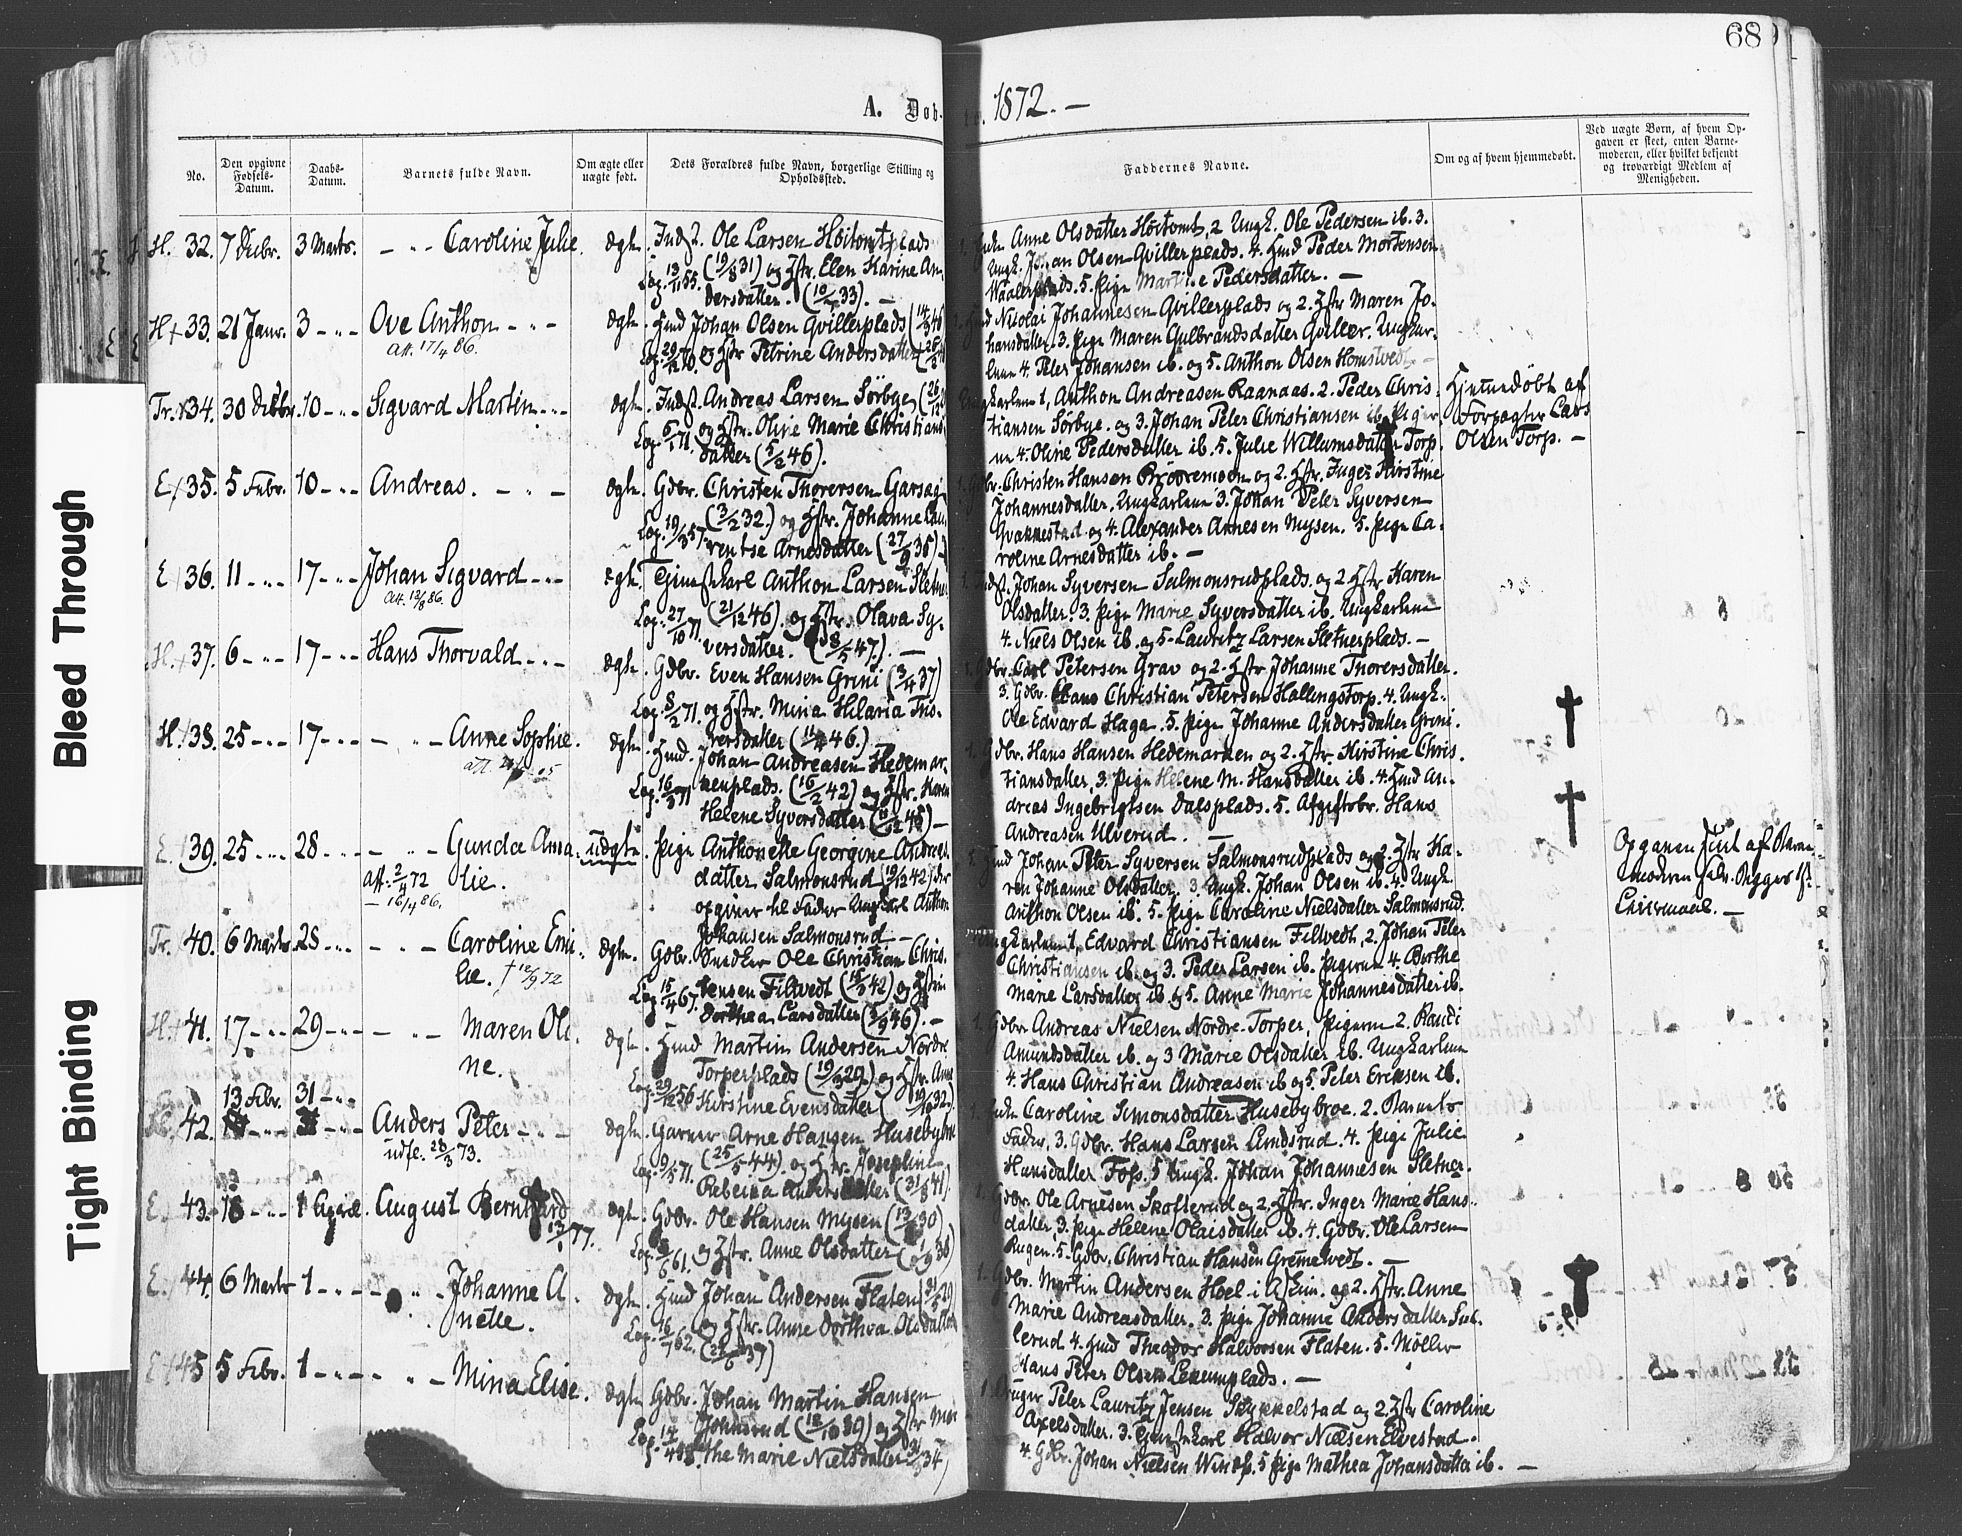 68
A. Døb-
te. 1872. —
No.
Den opgivne Fødsels-Datum.
Daabs-Datum.
Barnets fulde Navn.
Om ægte eller uægte født.
Dets Forældres fulde Navn, borgerlige Stilling og Opholdssted.
Faddernes Navne.
Om og af hvem hjemmedøbt.
Ved uægte Børn, af hvem Op-
gaven er skeet, enten Barne-
moderen, eller hvilket bekjendt
og troværdigt Medlem af
Menigheden.
Bleed Through
Tight Binding
H. 32. 7 Decbr. 3 Marts. — " — Caroline Julie. ægte. Indst. Ole Larsen Høitomtplads
(19/8 31) og Hstr. Elen Karine An-
dersdatter. (10/ 33). —
Anne Olsdatter Høitomt, 2 Ungk. Ole Pedersen ib. 3.
Ungk. Johan Olsen Gvillerplads. 4. Hmd Peder Mortensen
Waalerplads. 5. Pige Martine Pedersdatter. —
H+ 33. 21 Janr. 3 — " — Ove Anthon — " —
att. 17/4 86.
ægte. Hmd Johan Olsen Gvillerplads
og Hstr Petrine Andersdatter
Nicolai Johannesen Gvillerplads og 2. Hstr Maren Jo-
hansdatter. 3. Pige Maren Gulbrandsdatter Gviller. Ungkar-
lene 4. Peter Johansen ib. og 5. Anthon Olsen Homstvedt —
Tr. 34. 30 Decbr. 10 — " — Sigvard Martin — " —
ægte. Indst. Andreas Larsen Sørbye
Log. 6/1 71. og Hstr. Oline Marie Christians-
datter (5/2 46).
Ungkarlene 1, Anthon Andreasen Raanaas. 2. Peder Chris-
tiansen Sørbye. og 3. Johan Peter Christiansen ib. Piger-
ne 4. Oline Pedersdatter ib. 5. Julie Willumsdatter Torp.
Hjemmedøbt af
Forpagter Lars
Olsen Torp. —
E. 35. 5 Febr. 10 — " — Andreas. — " —
ægte. Gdbr. Christen Thorersen Garseg
(3/2 32.) og Hstr. Johanne Lau-
Log. 19/3 57. rentse Arnesdatter
1. Gdbr. Christen Hansen og 2. Hstr. Inger Kirstine
Johannesdatter. Ungkarlene 3. Johan Peter Syversen
og 4. Alexander Arnesen Mysen. 5. Pige Ca-
roline Arnesdatter ib. —
E 36. 11 — " — 17 — " — Johan Sigvard — " —
att. 12/8 86.
Tjenestkarl Anthon Larsen Sletner
Log. 27/10 71. (21/12 46). og Hstr. Olava Sy-
versdatter. (8/5 47.). —
Johan Syversen Salmonsrudplads. og 2. Hstr Karen
Olsdatter. 3. Pige Marie Syversdatter ib. Ungkarlene
4. Niels Olsen ib. og 5. Lauritz Larsen Sletnerplads. —
37. 6 — " — 17 — " — Hans Thorvald — " —
ægte. Gdbr. Even Hansen Grini (3/4 37)
Log. 8/2 71. og Hstr. Mina Hilaria Tho-
rersdatter (11/ 46.) —
1. Gdbr. Carl Petersen Grav og 2. Hstr Johanne Thorersdatter.
3. Gdbr. Hans Christian Petersen Hallingstorp. 4. Ungk.
Ole Edvard Haga. 5. Pige Johanne Andersdatter Grini.
H. 38. 25 — " — 17 — " — — " — Anne Sophie.
ægte. Hmd. Johan Andreasen Hedemar-
kenplads. (16/2 42) og Hstr. Karen
Helene Syversdatter
1. Gdbr. Hans Hansen Hedemarken og 2. Hstr Kirstine Chris-
tiansdatter, 3. Pige Helene M. Hansdatter ib. 4. Hmd An-
dreas Ingebrigtsen Dalsplads. 5. Afgiftsbr. Hans
Andreasen Ulverud. —
E. 39. 25 — " — 28 — " — — " — Gunda Ama-
lie.
att. 2/4 72
— 16/4 86.
uægte. Pige Anthonette Georgine Andreas-
datter Salmonsrud (19/12 42)
opgiver til Fader Ungkarl Anthon
Johansen Salmonsrud —
Hmd Johan Peter Syversen Salmonsrudplads og 2. Hstr Ka-
ren Johanne Olsdatter. 3 Ungk. Johan Olsen ib. 4. Ungk.
Anthon Olsen ib. 5. Pige Caroline Nielsdatter Salmonsrud.
Opgaven skeet af Barne-
moderen selv. Begges 1ste
Leiermaal. —
Tr. 40. 6 Marts 28 — " — — " — Caroline Emi-
lie. † 12/9 72
ægte. Gdbr. Smedker Ole Christian Chris-
tensen Filtvedt og Hstrin
Log. 15/4 67. Dorthea Larsdatter (3/9 46). —
Ungkarlene 1, Edvard Christiansen Filtvedt, 2. Johan Peter
Christiansen ib. og 3. Peder Larsen ib. Pigerne 4. Berthe
Marie Larsdatter ib. og 5. Anne Marie Johannesdatter ib.
H+ 41. 17 — " — 29 — " — — " — Maren Oli-
ne.
ægte. Hmd Martin Andersen Nordre
Torperplads (19/3 29.) og Hstr. Anne
Log. 29/12 56 Kirstine Evensdatter
1. Gdbr. Andreas Nielsen Nordre Torper, Pigerne 2. Randi
Amundsdatter ib. og 3 Marie Olsdatter ib. Ungkarlene
4. Hans Christian Andreasen ib og 5. Peter Eriksen ib.
13 Febr. 31 — " —
42. Anders Peter — " —
udfl. 28/3 73.
ægte. Garver Arne Hansen Husebybroe
(25/5 44). og Hstr. Josephine
Log. 9/5 71. Rebecca Andersdatter (31/8 41)
Caroline Simonsdatter Husebybroe. 2. Barnets
Fader. 3. Gdbr. Hans Larsen Lundsrud. 4. Pige Julie
Hansdatter Foss. 5 Ungk. Johan Johannesen Sletner.
E. 43. 1 April. August Bernhard
13/1 77.
ægte. Gdbr. Ole Hansen Mysen
og Hstr. Anne Olsdatter
1. Gdbr. Ole Arnesen Skofterud og 2. Hstr. Inger Marie Hans-
datter, 3. Pige Helene Olaisdatter ib. 4. Gdbr. Ole Larsen
Rugen. 5. Gdbr. Christian Hansen Gremetvedt. —
E. 44. 6 Marts 1 — " — — " — Johanne A-
nette.
ægte. Hmd Johan Andersen Flaten
og Hstr. Anne Dorthea Olsdatter
1. Gdbr. Martin Andersen Hoel i Askim. og 2. Hstr. Anne
Marie Andreasdatter. 3. Pige Johanne Andersdatter Sul-
lerud 4. Hmd Theodor Halvorsen Flaten. 5. Møller
Hans Peter Olsen Lekumplads. —
E 45 5 Febr. 1 — " — — " — Mina Elise.
ægte. Gdbr. Johan Martin Hansen
Johnsrud (12/10 30) og Hstr Mar-
the Marie Nielsdatter
1 Bruger Peter Lauritz Jensen Skykkelstad og 2. Hstr Caroline
Axelsdatter. 3. Tjenestkarl Halvor Nielsen Elvestad.
4. Gdbr. Johan Nielsen 5 Pige Mathea Johansdatter ib. —